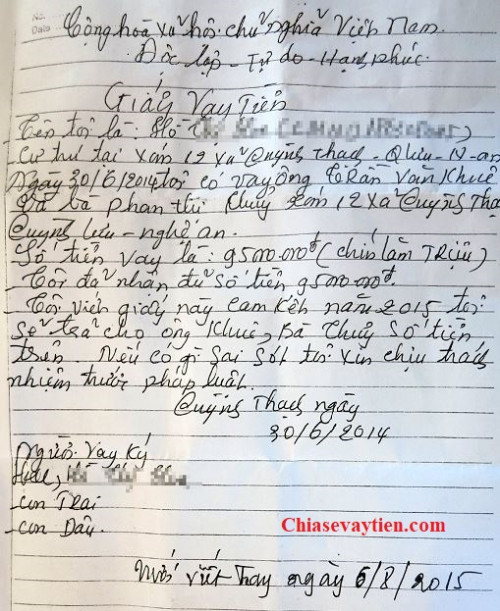 No.
Date
Cộng hoà xã hội chữ nghĩa Việt Nam.
Độc lập - Tự do - Hạnh phúc.
Giấy Vay Tiền
- Tên tôi là: Hồ
- Cư trú tại xóm 12 xã Quỳnh Thạch - Q lưu - N-an
Ngày 30/6/2014 tôi có vay ông Trần Văn Khuê
và bà phan thị thuỷ xóm 12 xã Quỳnh Thạ
Quỳnh lưu - nghệ an.
- Số tiền vay là: 95000.000đ (chín lăm Triệu)
- Tôi đã nhận đủ số tiền 95000.000đ.
- Tôi viết giấy này cam kết năm 2015 tôi
sẽ trả cho ông Khuê, Bà Thuỷ số tiền
trên. Nếu có gì sai sót tôi xin chịu trách
nhiệm trước pháp luật.
Quỳnh Thạch ngày
30/6/2014
người vay ký
- con Trai
- con Dâu.
Chiasevaytien.com
viết tay ngày 6/8/2015